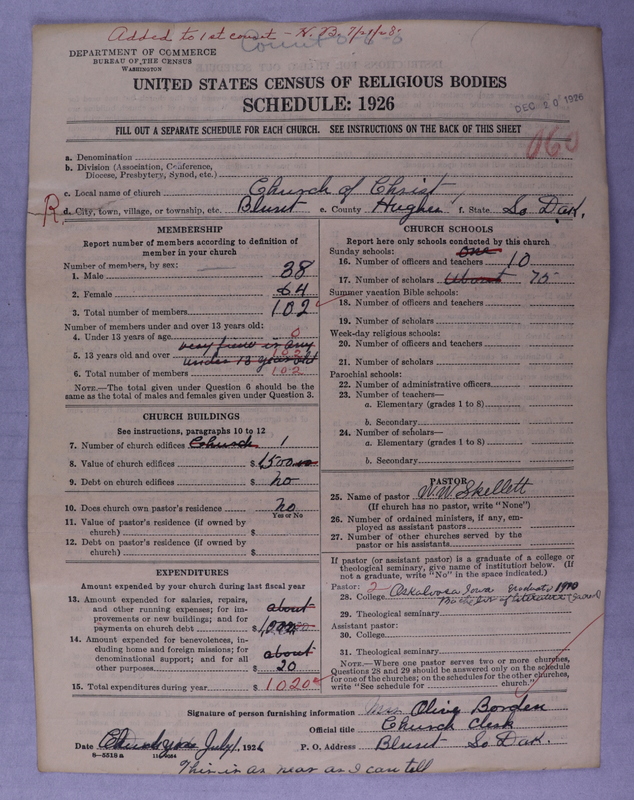 Added to 1st count - H. B. 7/21/28
DEPARTMENT OF COMMERCE
BUREAU OF THE CENSUS
WASHINGTON
UNITED STATES CENSUS OF RELIGIOUS BODIES
SCHEDULE: 1926
DEC 20 1926
FILL OUT A SEPARATE SCHEDULE FOR EACH CHURCH. SEE INSTRUCTIONS ON THE BACK OF THIS SHEET
060
a. Denomination
b. Division (Association, Conference,
Diocese, Presbytery, Synod, etc.)
c. Local name of church Church of Christ
R d. City, town, village, or township, etc. Blunt e. County Hughes f. State So Dak.
MEMBERSHIP
Report number of members according to definition of
member in your church
Number of members, by sex:
1. Male 38
2. Female 64
3. Total number of members 102
Number of members under and over 13 years old:
4. Under 13 years of age 0
very few if any
5. 13 years old and over under 13 years old
6. Total number of members 102
NOTE.—The total given under Question 6 should be the
same as the total of males and females given under Question 3.
CHURCH BUILDINGS
See instructions, paragraphs 10 to 12
7. Number of church edifices Church 1
8. Value of church edifices $ 1,500.00
9. Debt on church edifices $ no
10. Does church own pastor's residence no
Yes or No
11. Value of pastor's residence (if owned by
church) $
12. Debt on pastor's residence (if owned by
church) $
EXPENDITURES
Amount expended by your church during last fiscal year
13. Amount expended for salaries, repairs,
and other running expenses; for im-
provements or new buildings; and for about
payments on church debt $
14. Amount expended for benevolences, in-
cluding home and foreign missions; for about
denominational support; and for all
other purposes $ 20
15. Total expenditures during year $ 1020
CHURCH SCHOOLS
Report here only schools conducted by this church
Sunday schools: one
16. Number of officers and teachers 10
17. Number of scholars about 75
Summer vacation Bible schools:
18. Number of officers and teachers
19. Number of scholars
Week-day religious schools:
20. Number of officers and teachers
21. Number of scholars
Parochial schools:
22. Number of administrative officers
23. Number of teachers—
a. Elementary (grades 1 to 8)
b. Secondary
24. Number of scholars—
a. Elementary (grades 1 to 8)
b. Secondary
PASTOR
25. Name of pastor W. W. Skellett
(If church has no pastor, write "None")
26. Number of ordained ministers, if any, em-
ployed as assistant pastors
27. Number of other churches served by the
pastor or his assistants
If pastor (or assistant pastor) is a graduate of a college or
theological seminary, give name of institution below. (If
not a graduate, write "No" in the space indicated.)
Pastor: 2
28. College Oskaloosa Iowa Graduate 1910
Bachelor of Literature
29. Theological seminary
Assistant pastor:
30. College
31. Theological seminary
NOTE.—Where one pastor serves two or more churches,
Questions 28 and 29 should be answered only on the schedule
for one of the churches; on the schedules for the other churches,
write "See schedule for church."
Signature of person furnishing information Mrs. Olive Borden
Official title Church Clerk
Date July 1, 1926 P. O. Address Blunt So Dak.
8—5518 a
This is as near as I can tell